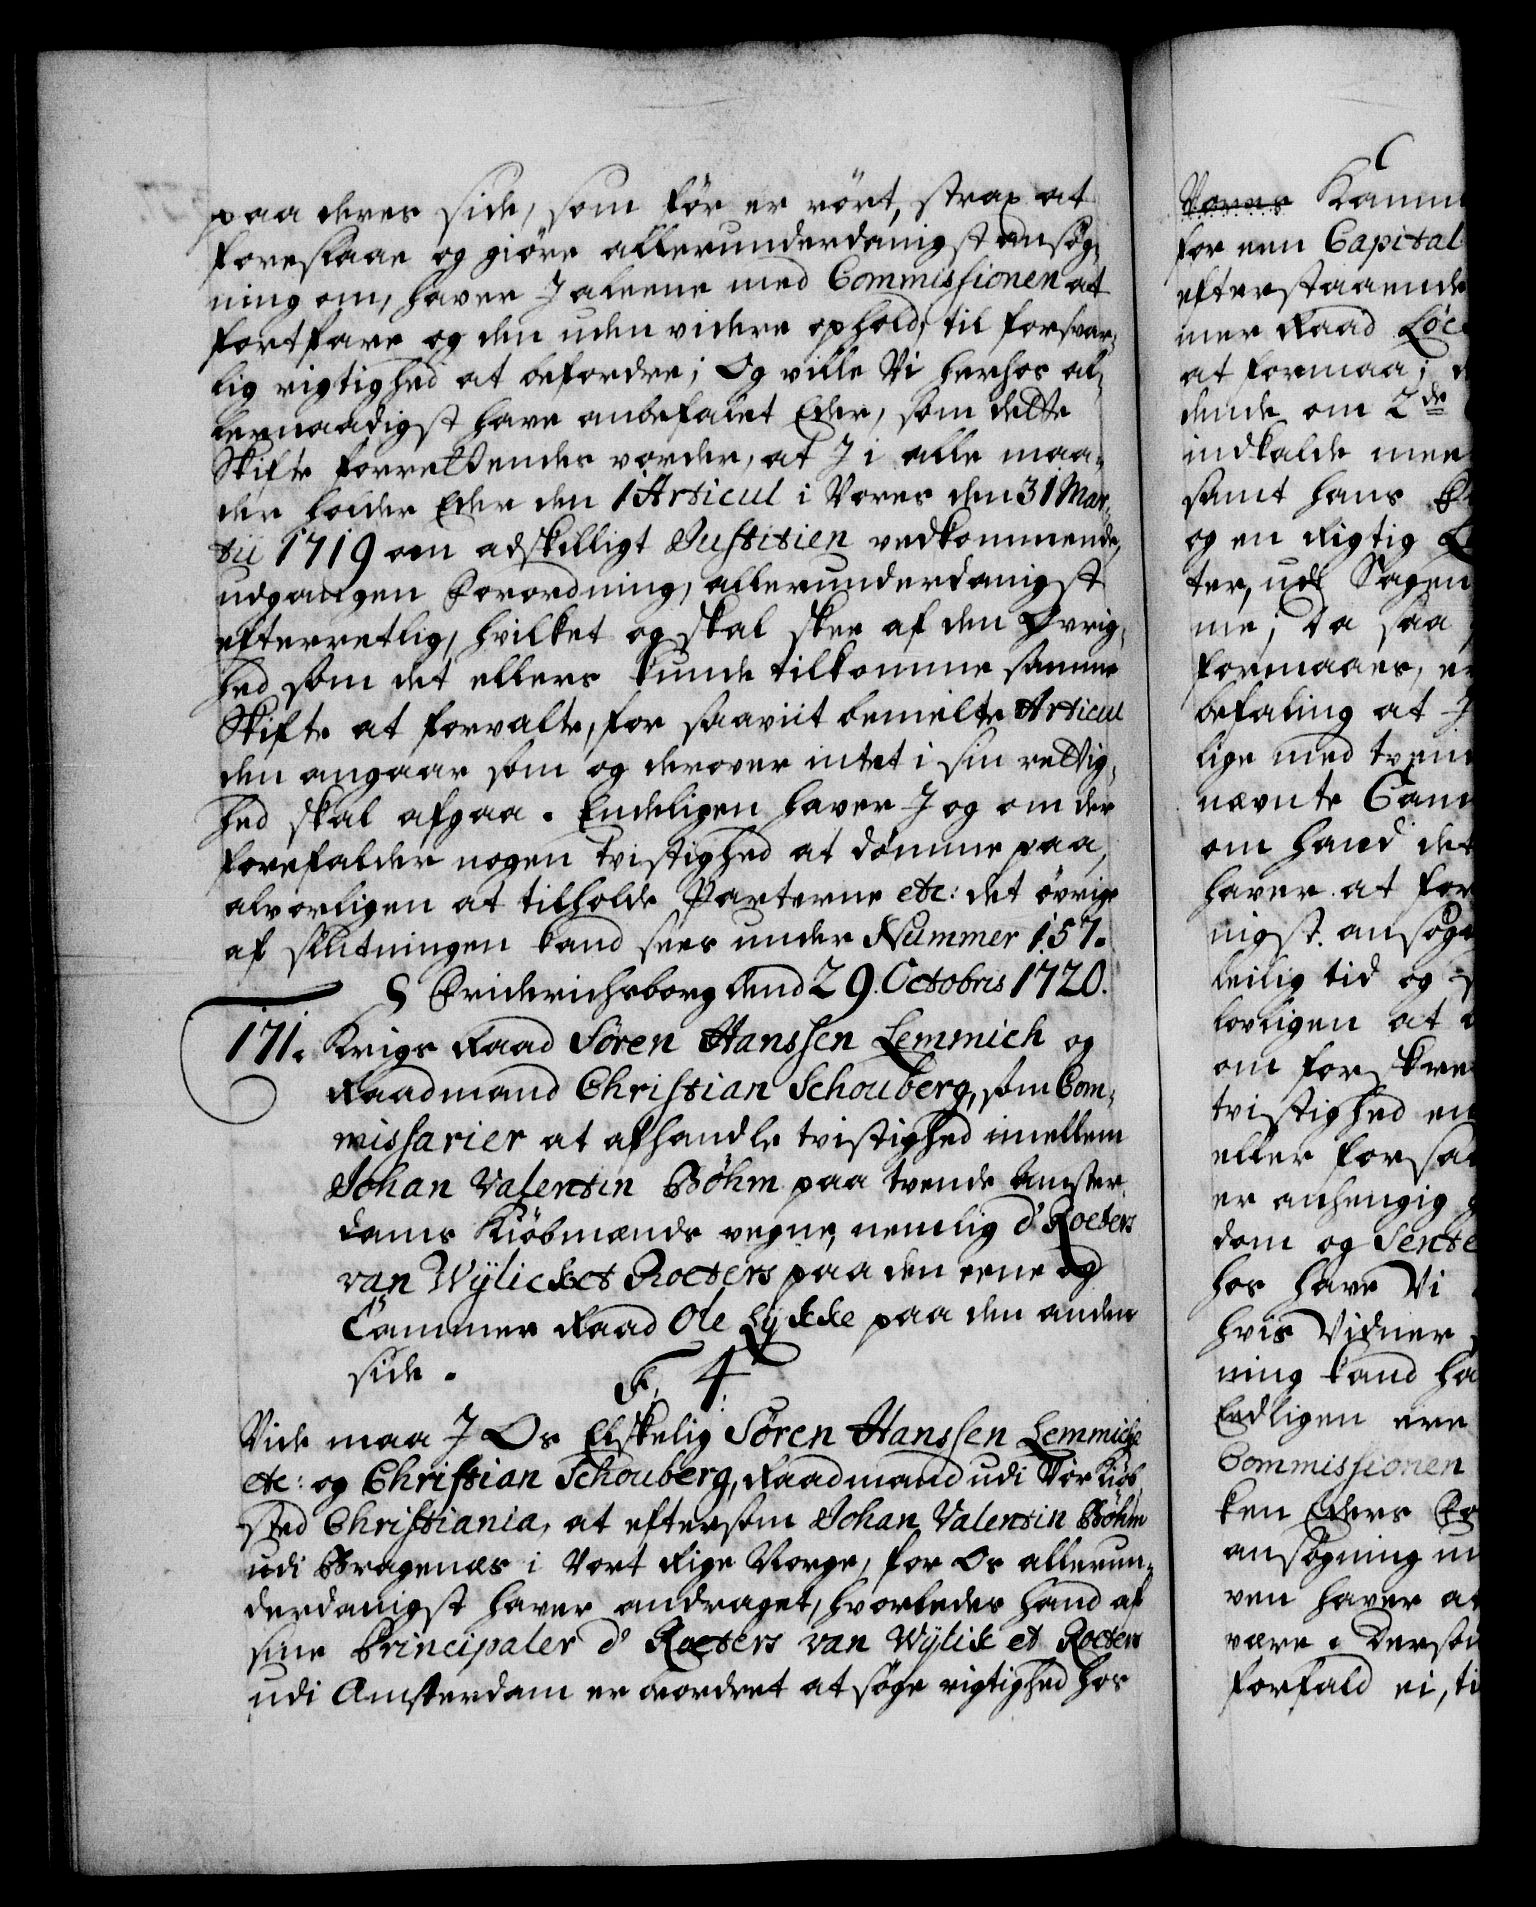 paa deres side, som før er rørt, strax at
foreslaae og giøre allerunderdanigst ansøg-
ning om, haver I aleene med Commissionen at
fortfare og den uden videre ophold, til forsvar-
lig rigtighed at befordre; Og ville Vi herhos al-
lernaadigst have anbefalet Eder, som dette
Skifte forrettendes vorder, at I i alle maa-
der holder Eder den 1 Articul i Vores den 31 Mar-
tii 1719 om adskilligt Justitien vedkommende,
udgangen Forordning, allerunderdanigst
efterretlig, hvilket og skal skee af den Øvrig-
hed som det ellers kunde tilkomme samme
Skifte at forvalte, for saaviit bemelte Articul
den angaar som og derover intet i sin rettig-
hed skal afgaa. Endeligen haver I og om der
forefalder nogen tvistighed at dømme paa,
alvorligen at tilholde Parterne etc: det øvrige
af slutningen kand sees under Nummer 157.
Friderichsborg dend 29. Octobris 1720.
171. Krigs Raad Søren Hanssen Lemmich og
Raadmand Christian Schouberg, som Com-
missarier at afhandle tvistighed imellem
Johan Valentin Bøhm paa tvende Amster-
dams Kiøbmænds vegne, nemlig d° Roeters
van Wÿlick et Roeters paa den eene og
Cammer Raad Ole Lykke paa den anden
side.
F. 4.
Vide maa I Os Elskelig Søren Hanssen Lemmiche
etc: og Christian Schouberg, Raadmand udi Vor Kiøb-
sted Christiania, at eftersom Johan Valentin Bøhm
udi Bragenæs i Vort Rige Norge, for Os allerun-
derdanigst haver andraget, hvorledes hand af
sine Principaler d° Roeters van Wÿlik et Roeters
udi Amsterdam er beordret at søge rigtighed hos
Vores Kamm
for een Capital
efterstaaende
mer Raad
at formaa;
dende om 2de
indkalde
samt hans
og en Rigtig
ter, udi Sagen
me; Da saa
formaaes,
befaling at I
lige med
nævnte Cam
om hand det
haver at for
nigst. ansøge
leilig tid og
lovligen at
om for
tvistighed
eller forsa
er anhengig
dom og Sente
hos have Vi
hvis Vidner
ning kand ha
Endligen ere
Commissionen
ken Eders
ansøgning
ven haver at
være. Dersom
forfald ei, ti